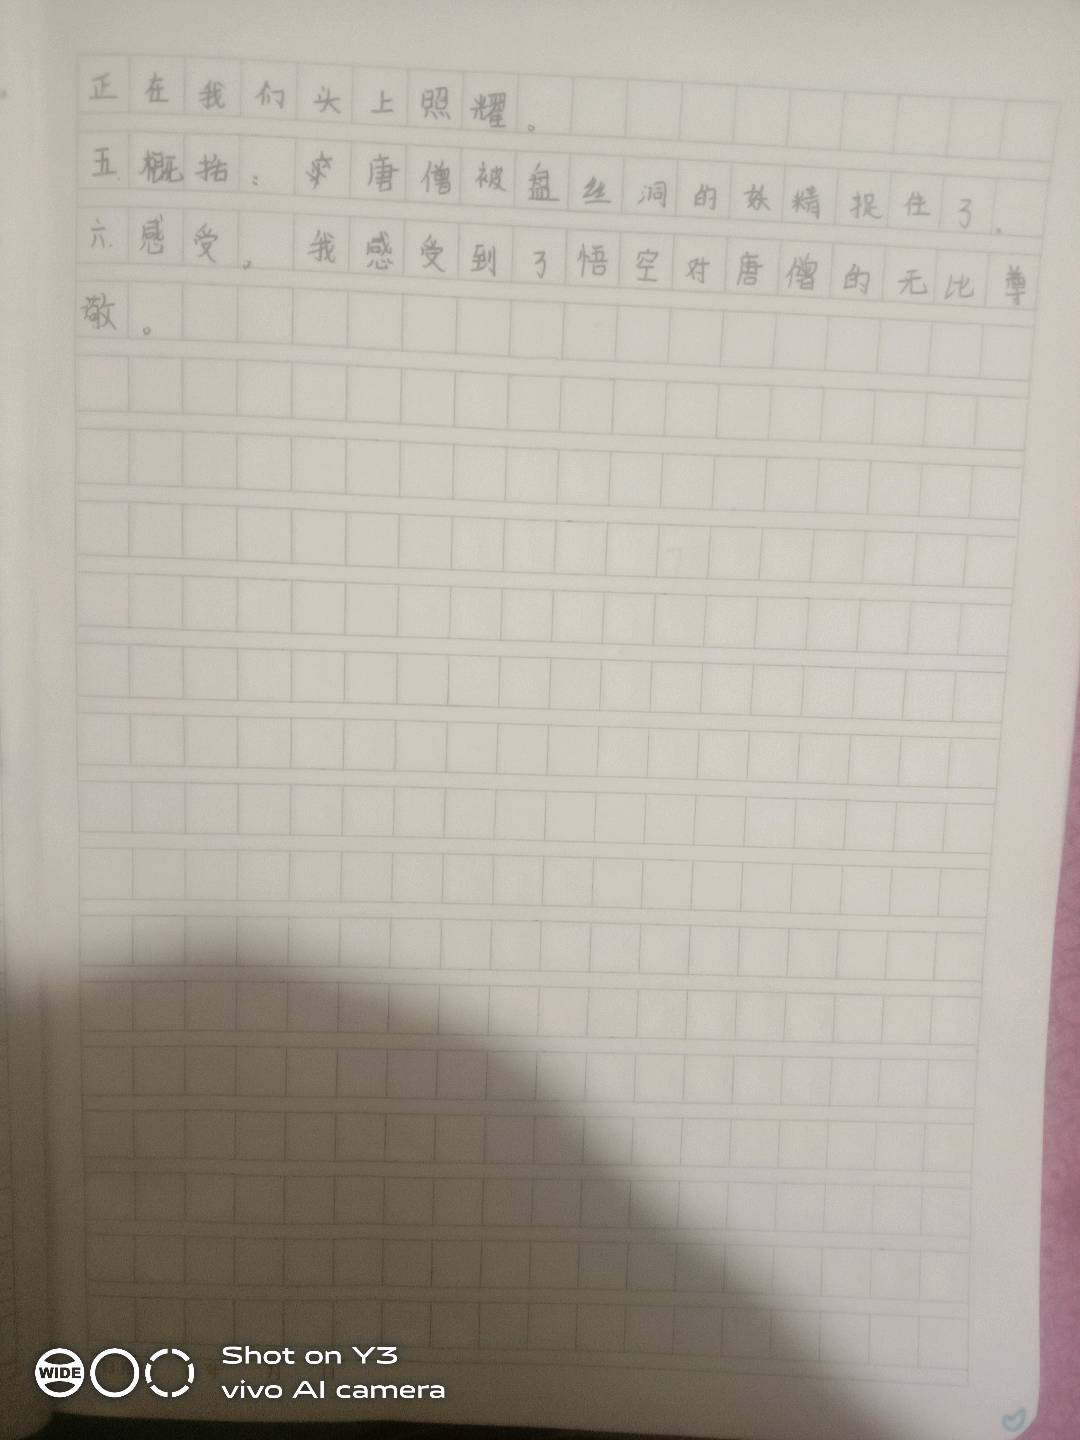 正在我们头上照耀。
五.概括: 唐僧被盘丝洞的妖精捉住了.
六.感受, 我感受到了悟空对唐僧的无比尊
敬。
WIDE
Shot on Y3
vivo AI camera